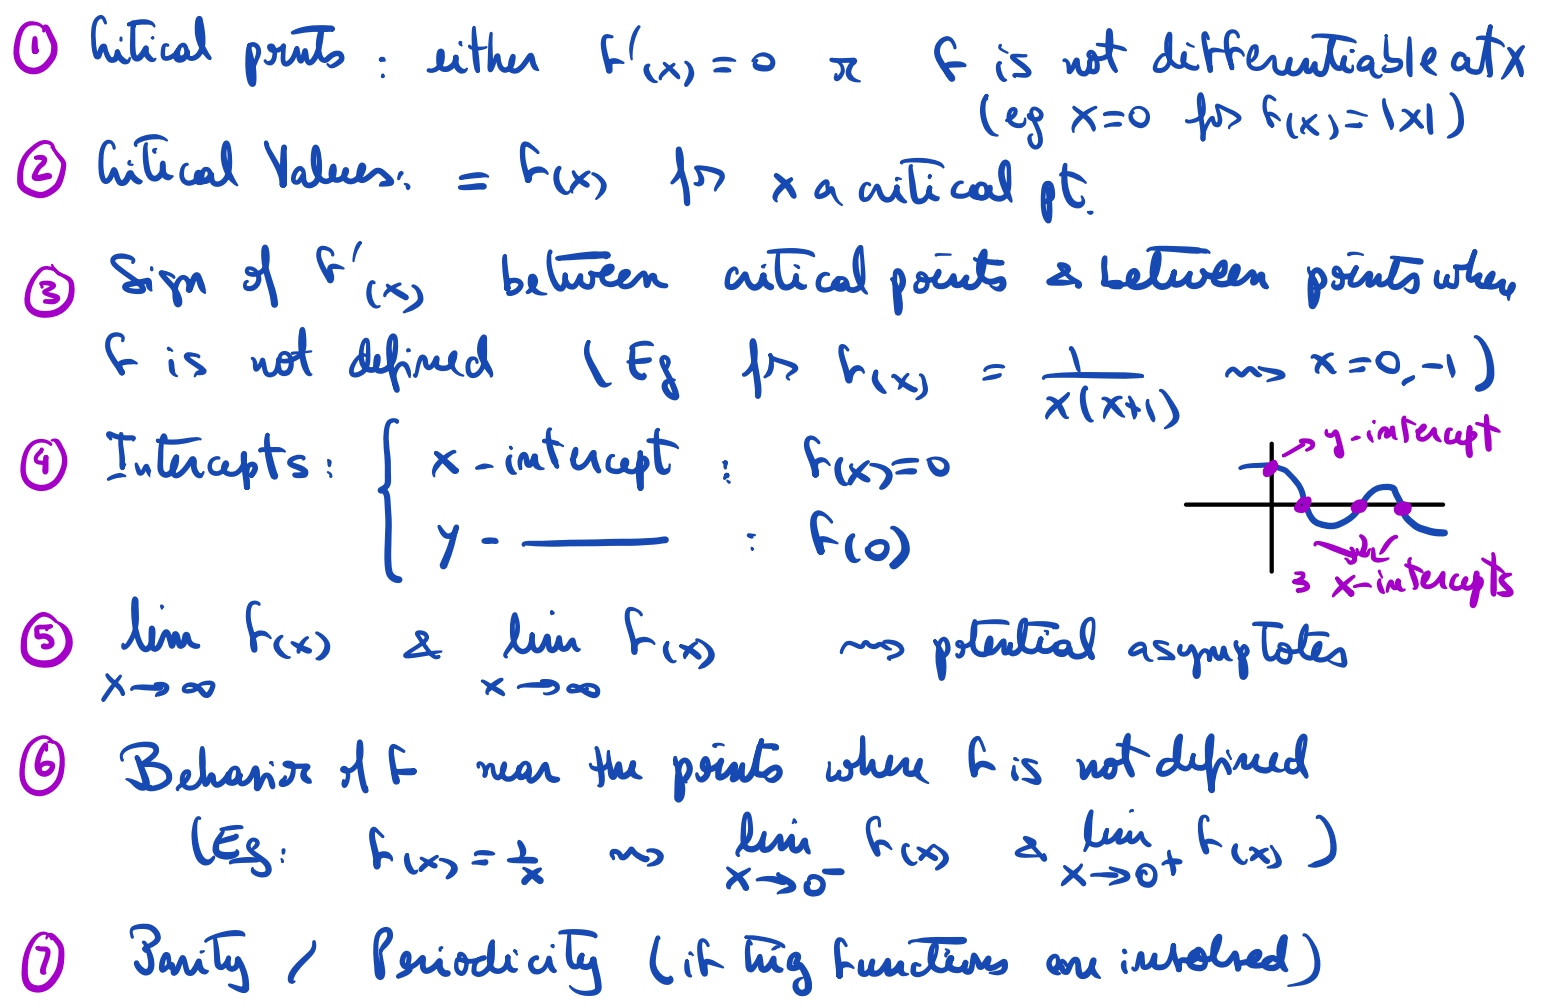 ① Critical points : either f'(x) = 0 or f is not differentiable at x
(eg x=0 for f(x) = |x|)
② Critical Values: = f(x) for x a critical pt.
③ Sign of f'(x) between critical points & between points when
f is not defined (Eg for f(x) = 1/x(x+1) ⇝ x = 0, -1)
④ Intercepts : { x - intercept : f(x) = 0
y - ——— : f(0)
y-intercept
3 x-intercepts
⑤ lim x→∞ f(x) & lim x→∞ f(x) ⇝ potential asymptotes
⑥ Behavior of f near the points where f is not defined
(Eg: f(x) = 1/x ⇝ lim x→0⁻ f(x) & lim x→0⁺ f(x) )
⑦ Parity / Periodicity (if trig functions are involved)